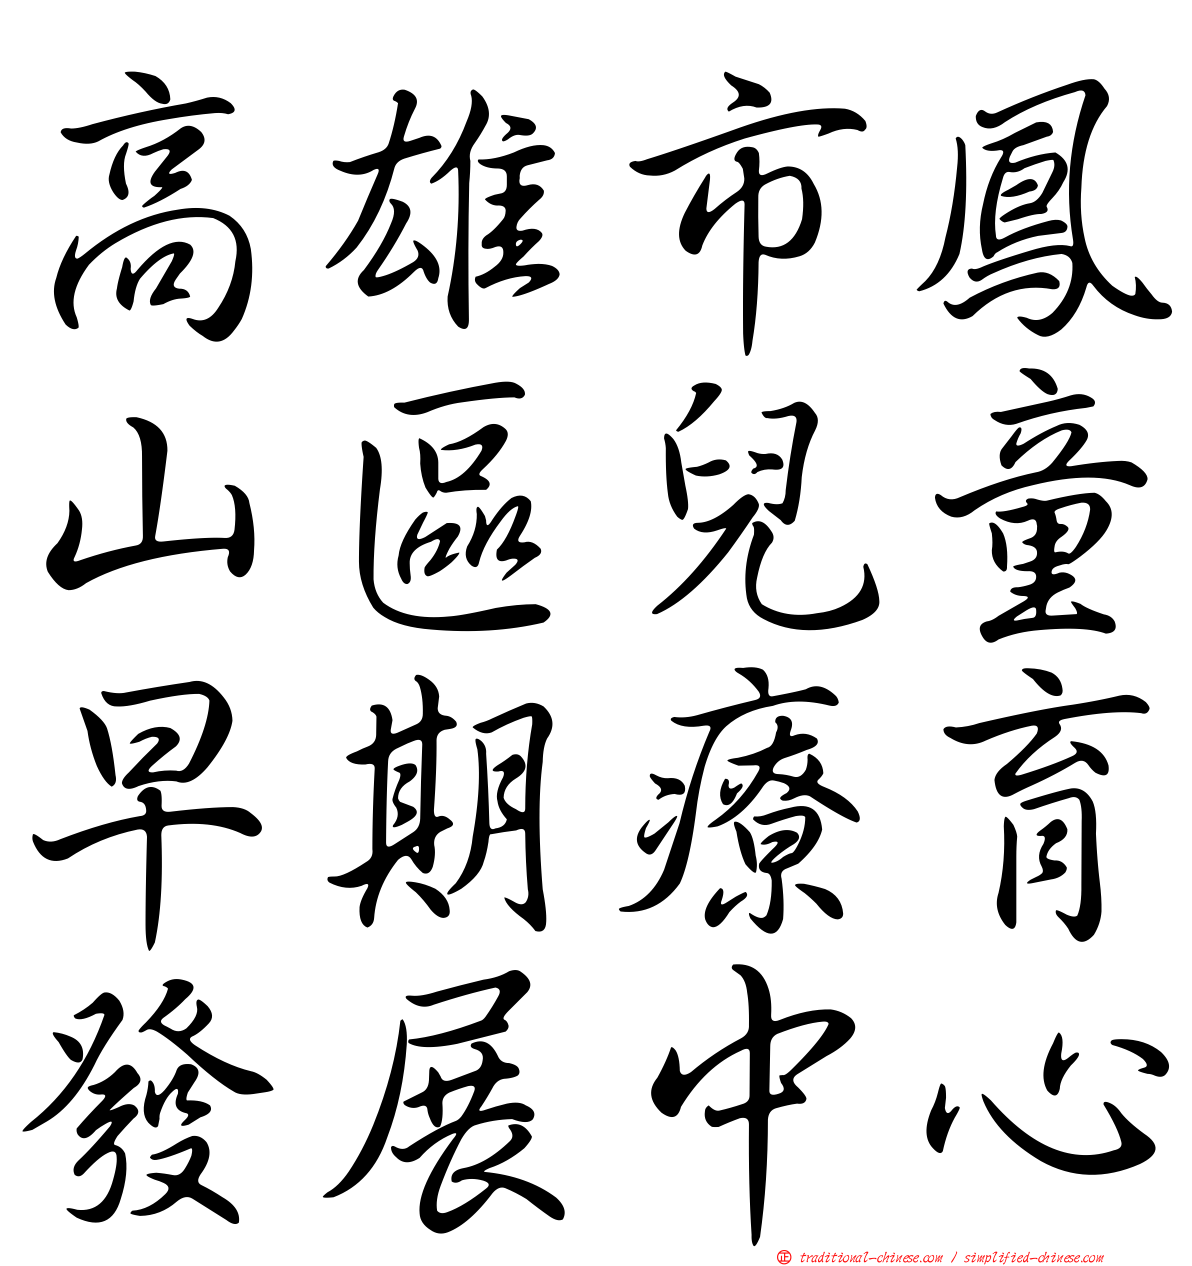 高雄市鳳
山區兒童
早期療育
發展中心
㊣ traditional-chinese.com / simplified-chinese.com